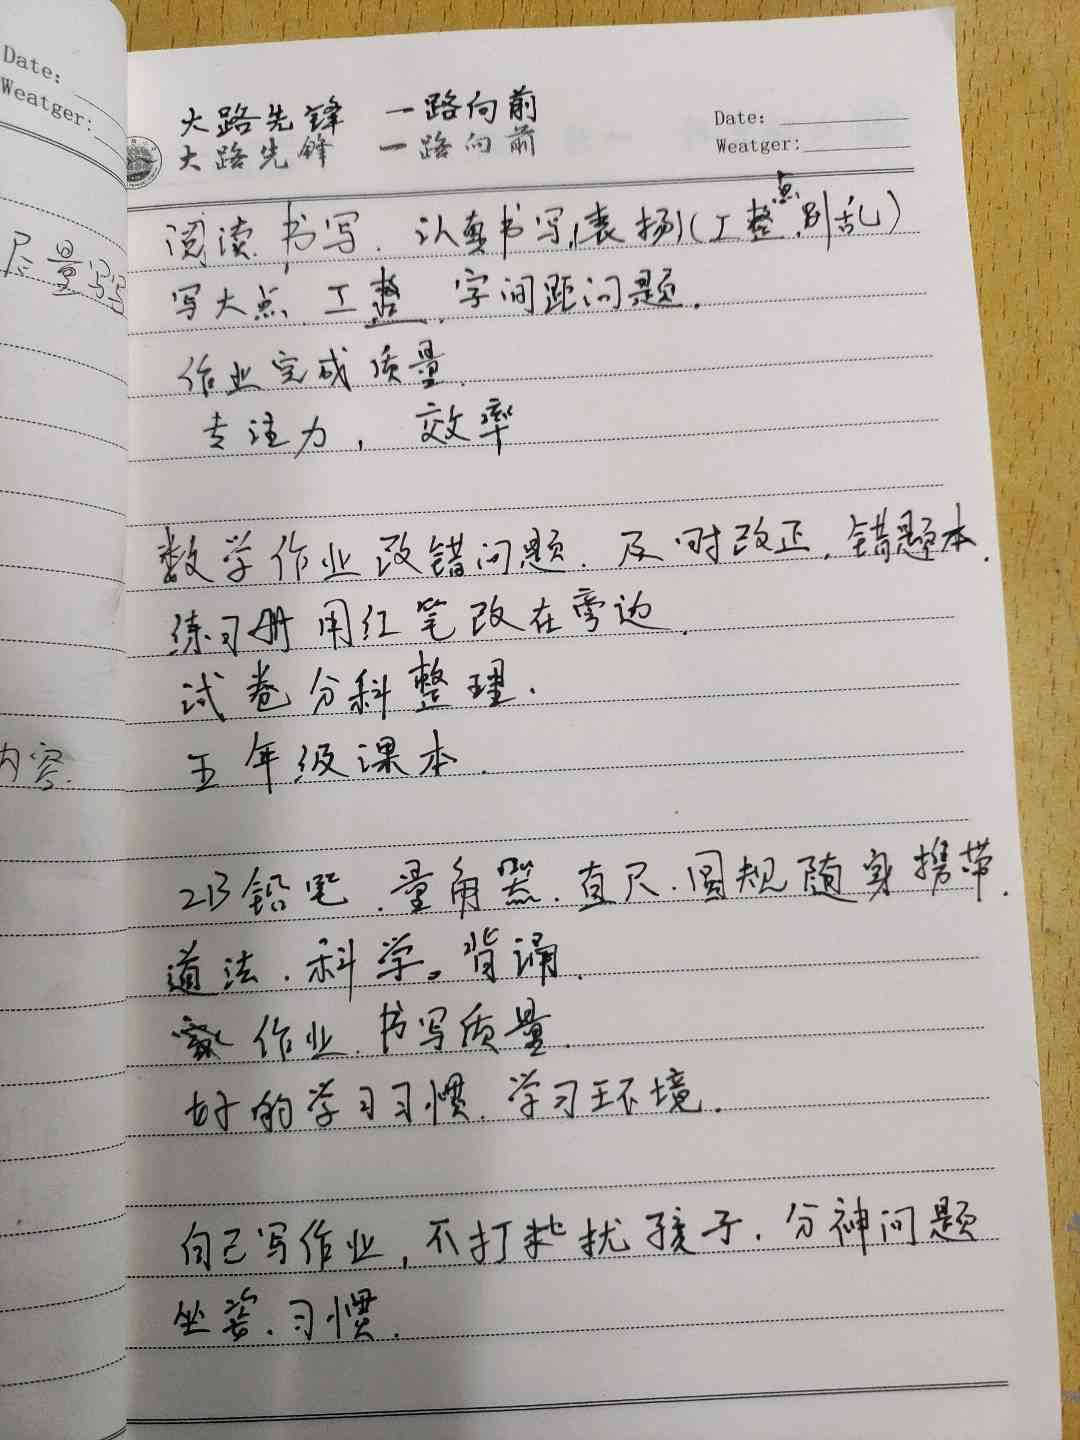 Date:
Weatger:
尽量写
内容.
大路先锋 一路向前
大路先锋 一路向前
Date:
Weatger:
阅读.书写.认真书写,表扬(工整点,别乱)
写大点.工整.字间距问题.
作业完成质量.
专注力,效率
数学作业改错问题.及时改正.错题本.
练习册用红笔改在旁边.
试卷分科整理.
五年级课本.
2B铅笔.量角器.直尺.圆规随身携带.
道法.科学。背诵.
作业.书写质量.
好的学习习惯.学习环境.
自己写作业,不打扰孩子.分神问题
坐姿.习惯.